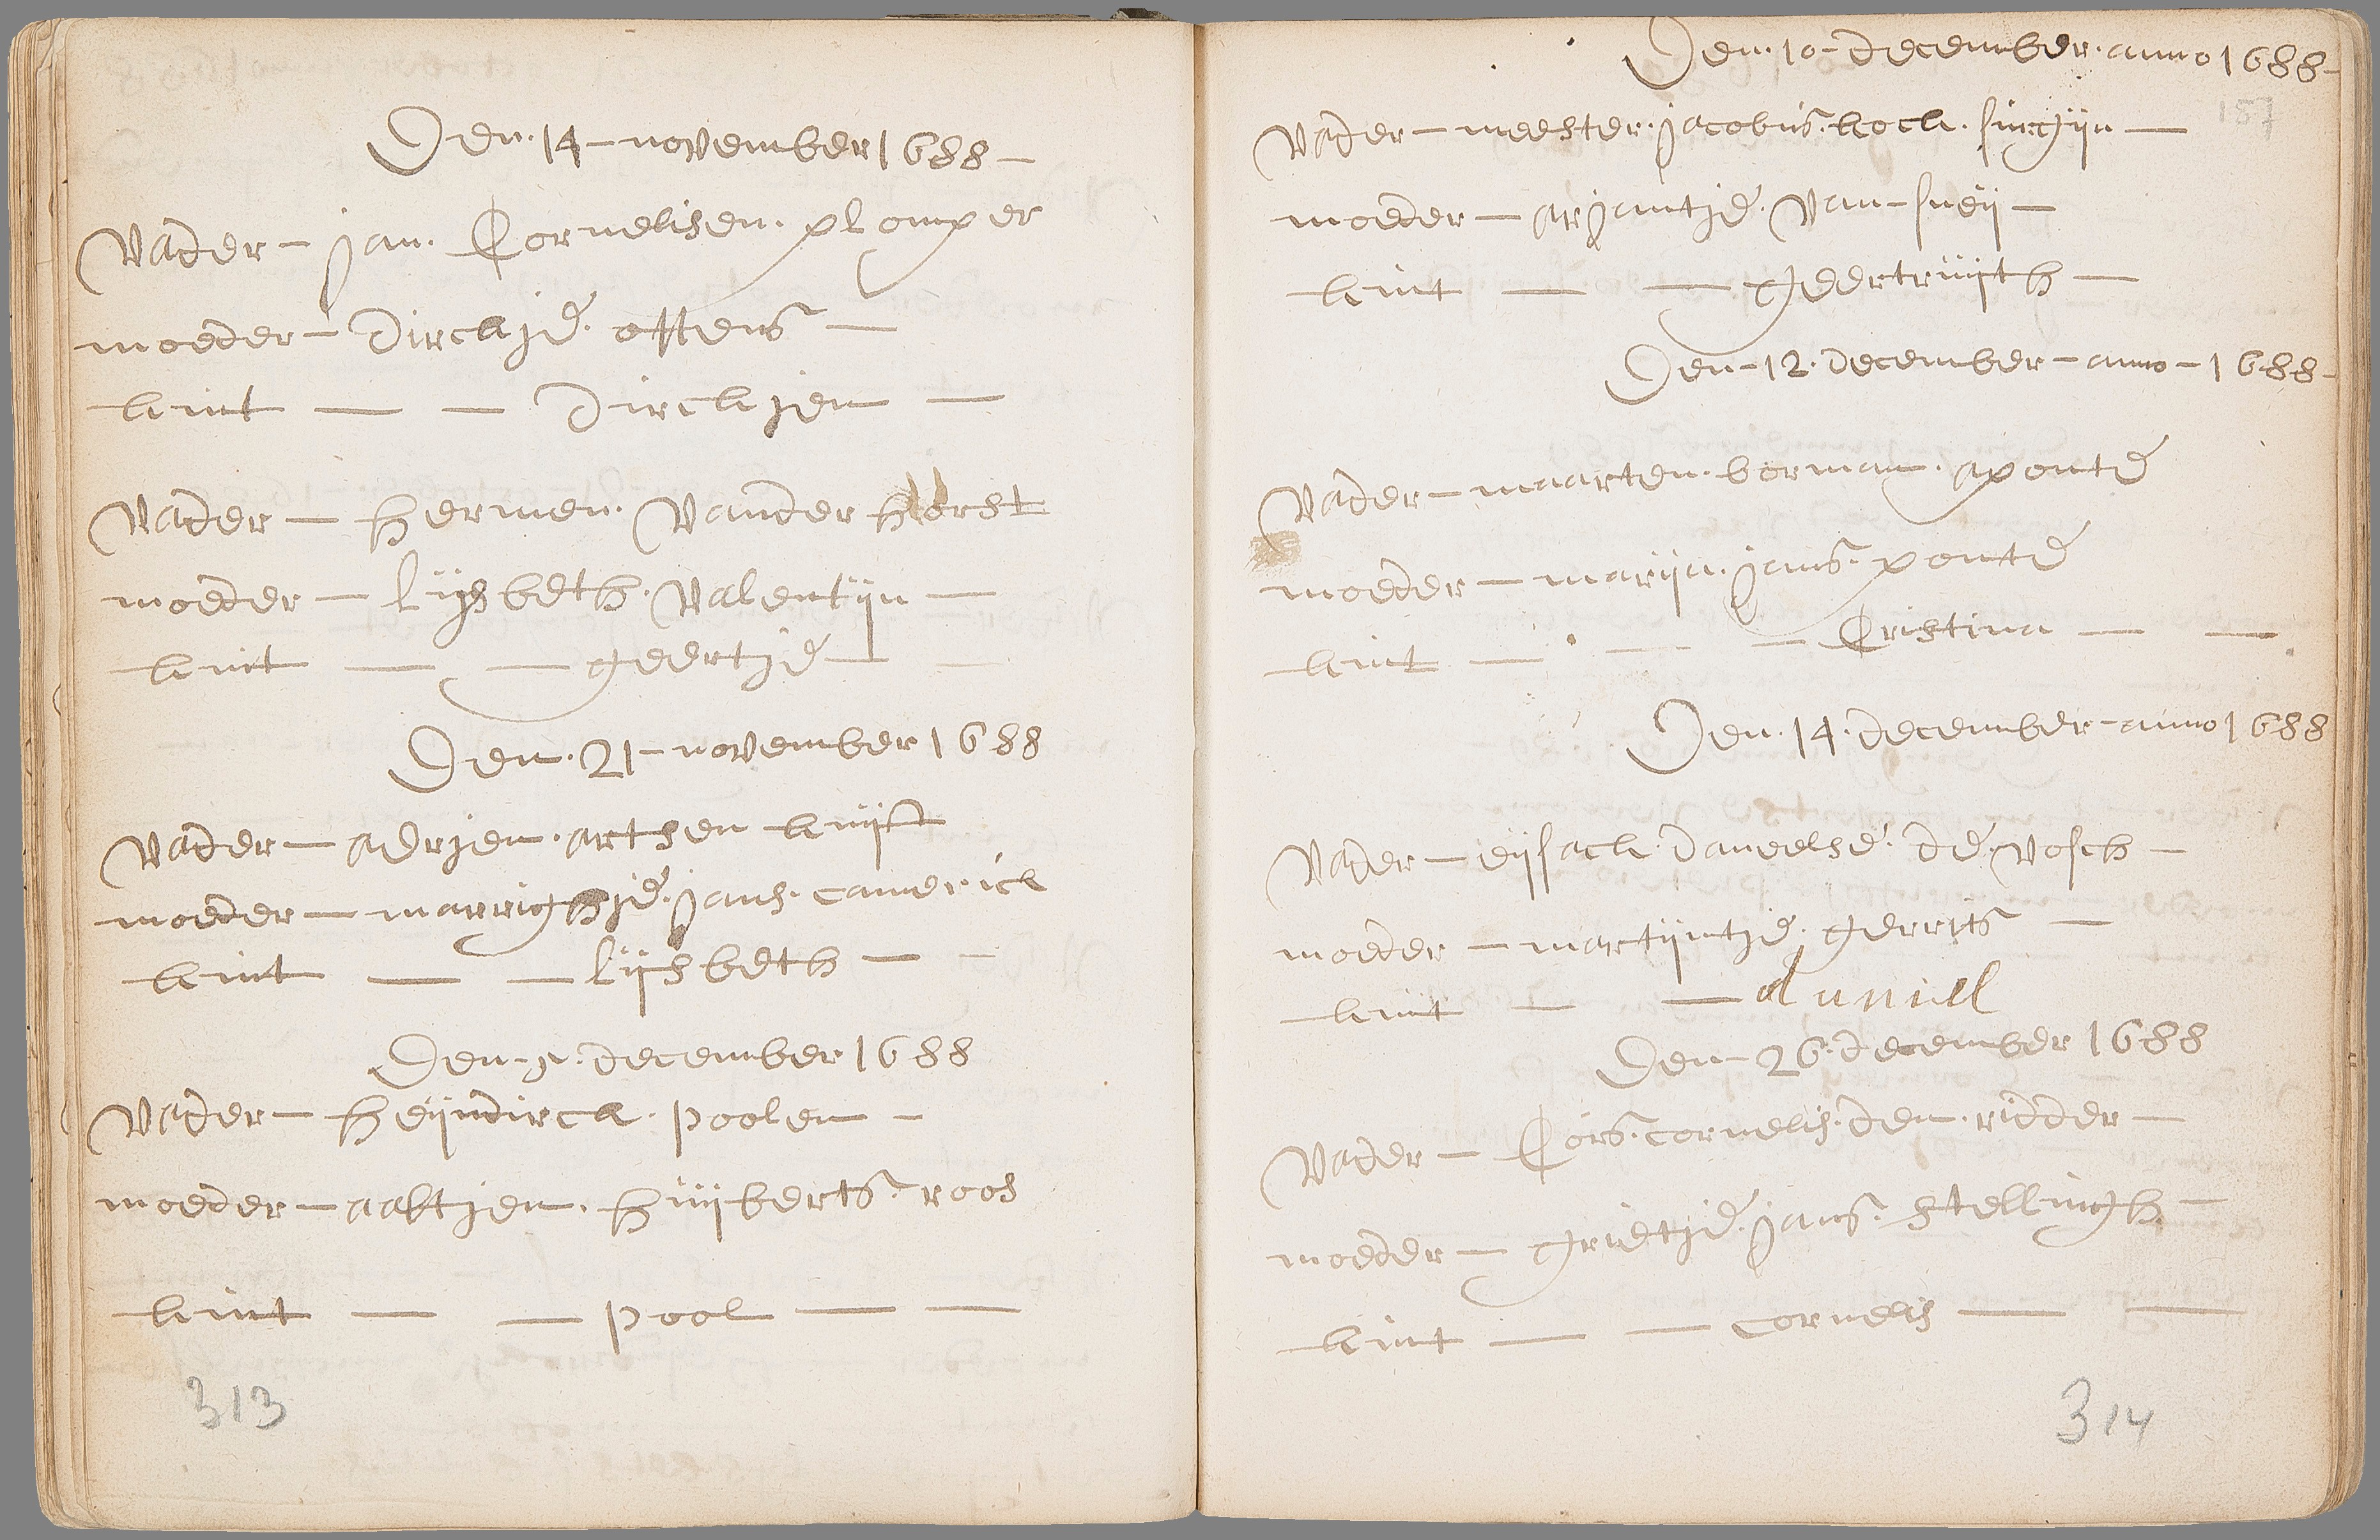 Den. 14 - november 1688 -
Vader - jan. Cornelisen. plomper
moeder - Dirckje. ottens -
kint - - Dirckjen -
Vader - hermen. Vander horst
moeder - lijsbeth. Valentijn -
kint - - geertje - -
Den. 21 - november 1688
Vader - adrjen. artsen kuijst
moeder - marrighje. jans. camerick
kint - - lijsbeth - -
Den - 5. december 1688
Vader - heijndirck. poolen -
moeder - aaltjen. huijberts. roos
kint - - pool - -
313
Den. 10 - december. anno 1688 -
157
Vader - meester. jacobus. kock. surgijn -
moeder - arjaentje. Van - sneij -
kint - - geertruijth -
Den - 12. december - anno - 1688 -
Vader - maarten. borman. aponte
moeder - marija. jans. ponte
kint - - - Cristina - -
Den. 14. december - anno 1688
Vader - eijsack. daneelse. de. vosch -
moeder - martijntje. gerrits -
kint - - daniell
Den - 26. december 1688
Vader - Cors. cornelis. den. ridder -
moeder - grietje. jans. stellingh -
kint - - cornelis - -
314